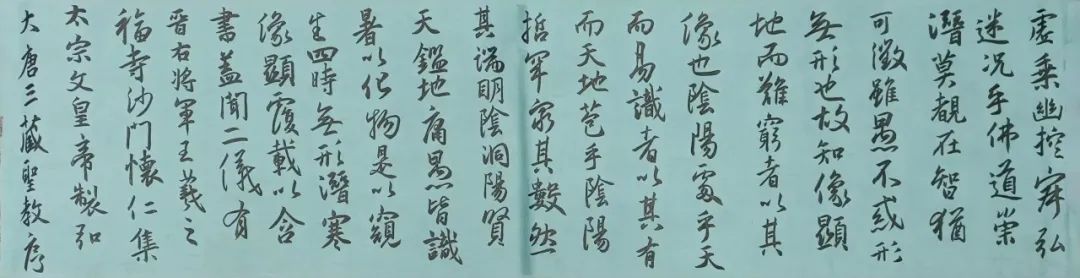 大唐三藏聖教序
太宗文皇帝製弘
福寺沙門懷仁集
晉右將軍王羲之
書蓋聞二儀有
像顯覆載以含
生四時無形潛寒
暑以化物是以窺
天鑑地庸愚皆識
其端明陰洞陽賢
哲罕窮其數然
而天地苞乎陰陽
而易識者以其有
像也陰陽處乎天
地而難窮者以其
無形也故知像顯
可徵雖愚不惑形
潛莫覩在智猶
迷況乎佛道崇
虛乘幽控寂弘